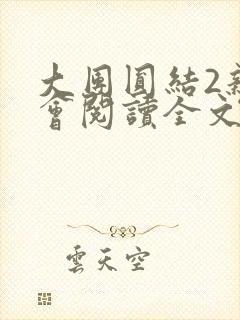 大團圓結2新
會閱讀全文
雲天空